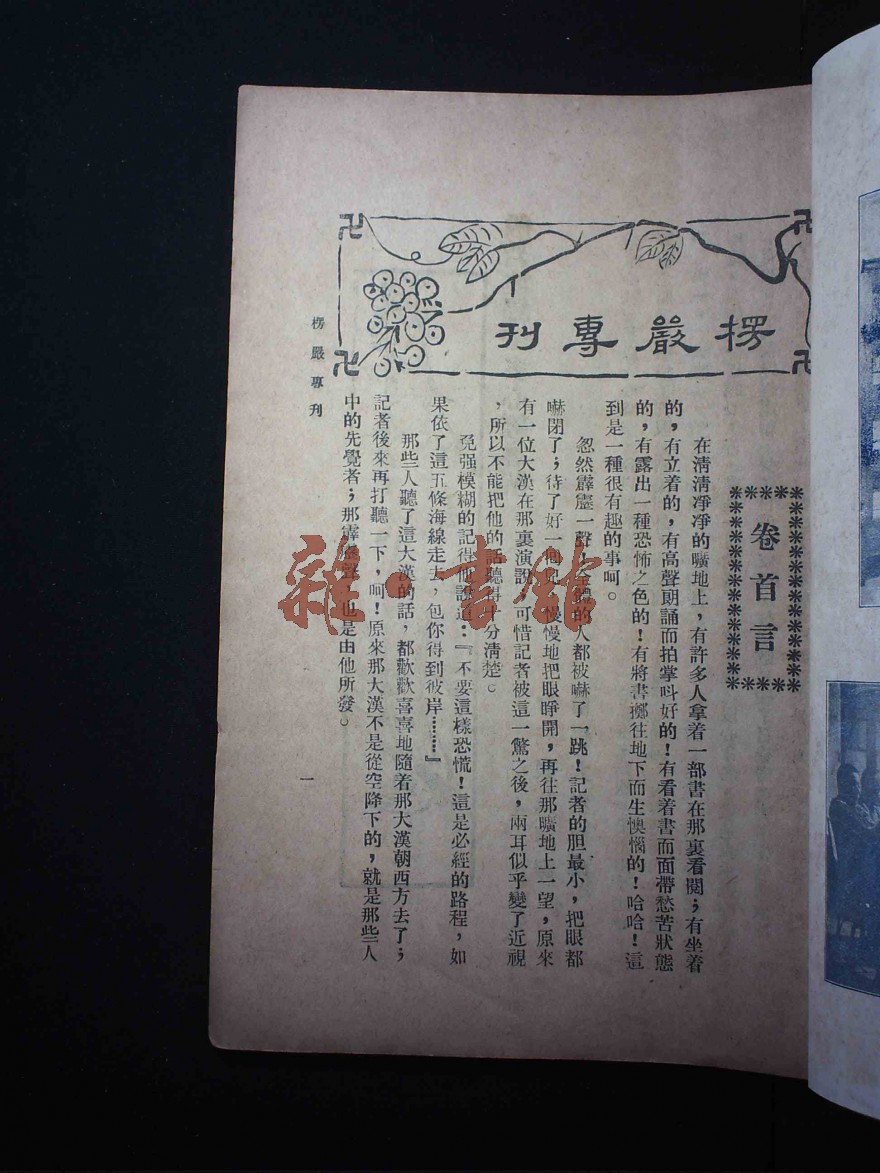 楞嚴專刊
卷首言
在清清凈凈的曠地上，有許多人拿着一部書在那裏看閱；有坐着
的，有立着的，有高聲朗誦而拍掌呌好的！有看着書而面帶愁苦狀態
的，有露出一種恐怖之色的！有將書擲往地下而生懊惱的！哈哈！這
到是一種很有趣的事呵。
忽然霹靂一聲，全體的人都被嚇了一跳！記者的胆最小，把眼都
嚇閉了；待了好一個兒，慢慢地把眼睜開，再往那曠地上一望，原來
有一位大漢在那裏演說，可惜記者被這一驚之後，兩耳似乎變了近視
，所以不能把他的話聽得十分清楚。
免强模糊的記得他說道：『不要這樣恐慌！這是必經的路程，如
果依了這五條海線走去，包你得到彼岸………』
那些人聽了這大漢的話，都歡歡喜喜地隨着那大漢朝西方去了；
記者後來再打聽一下，呵！原來那大漢不是從空降下的，就是那些人
中的先覺者；那霹靂聲，也是由他所發。
楞嚴專刊
一
雜·書館